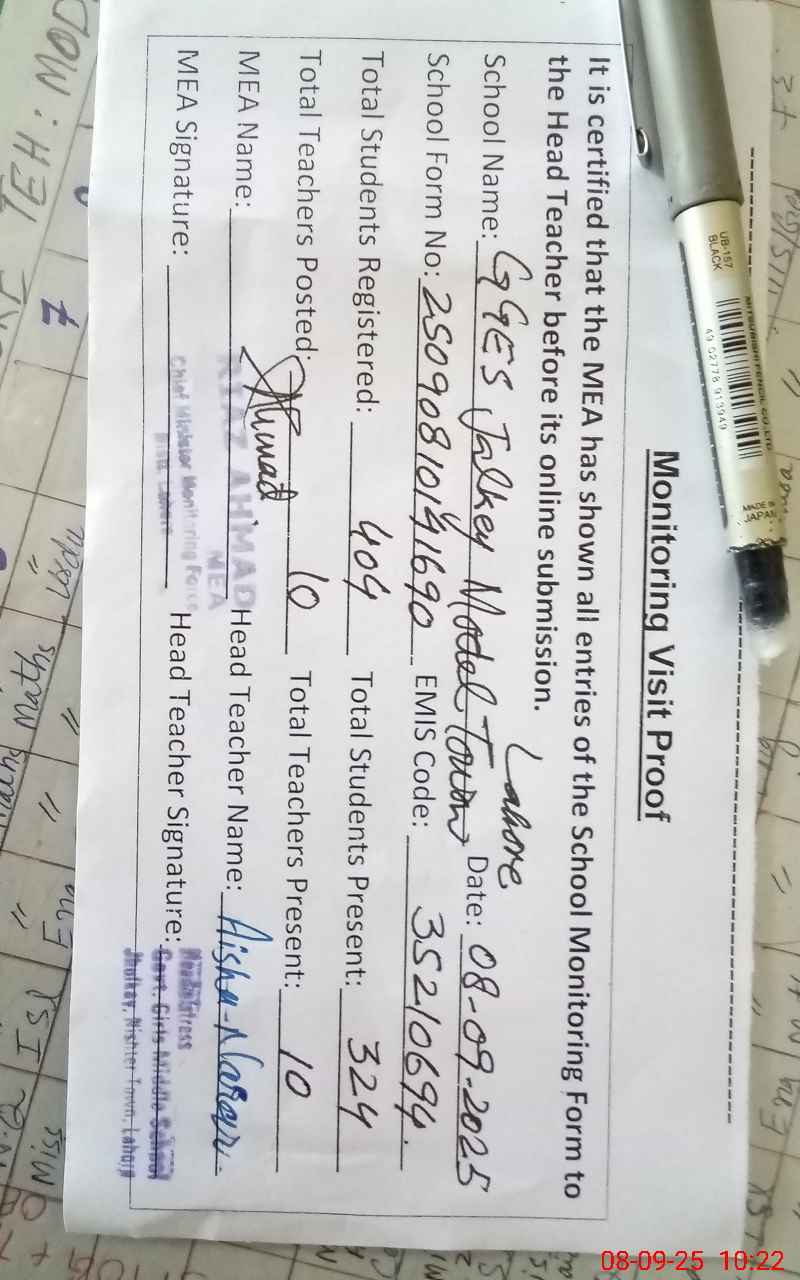 Monitoring Visit Proof
It is certified that the MEA has shown all entries of the School Monitoring Form to
the Head Teacher before its online submission.
School Name: GGES Jalkey Model Town Lahore Date: 08-09-2025
School Form No: 25090810141690 EMIS Code: 35210694.
Total Students Registered: 409 Total Students Present: 324
Total Teachers Posted: 10 Total Teachers Present: 10
MEA Name: RIAZ AHMAD Head Teacher Name: Aisha
MEA
MEA Signature: Ahmad Head Teacher Signature:
Chief Minister Monitoring Force
Distt. Lahore
Headmistress
Govt. Girls Middle School
Jhulkay, Nishter Town, Lahore
UB-157
BLACK
MITSUBISHI PENCIL CO.LTD
49 02778 913949
MADE IN
JAPAN
08-09-25 10:22